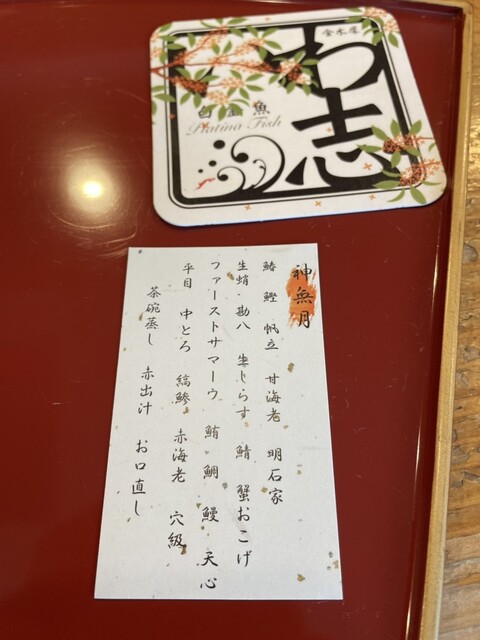 金木犀
わ志
白金魚
Platina Fish
神無月
鰆 鰹 帆立 甘海老 明石家
生蛸 勘八 生じらす 鯖 蟹おこげ
ファーストサマーウ 鮪 鯛 鰻 天心
平目 中とろ 縞鯵 赤海老 穴級
茶碗蒸し 赤出汁 お口直し